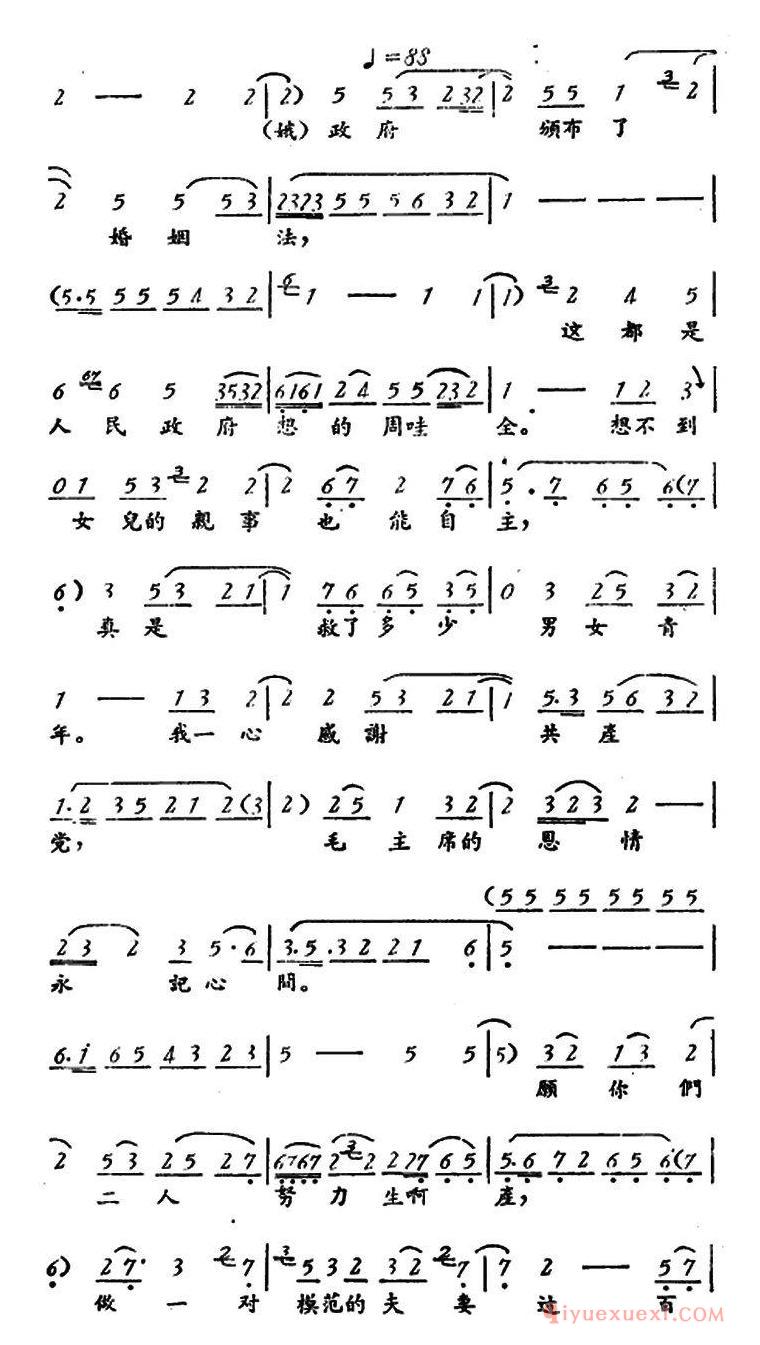 ♩=88
2 — 2 2 | 2) 5 53 232 | 2 55 1 3 2 |
(娥)政府 頒布了
2 5 5 53 | 2323 55 56 32 | 1 — — — |
婚姻 法,
(5.5 55 54 32 | 6 1 — 1 1 | 1) 3 2 4 5 |
这都是
6 67 6 5 3532 | 6161 24 55 232 | 1 — 12 3 |
人民政府想的周哇 全。想不到
01 53 3 2 2 | 2 67 2 76 | 5.7 65 6(7 |
女兒的親事 也能自主,
6) 3 53 21 | 1 76 65 35 | 0 3 25 32 |
真是 救了多少 男女青
1 — 13 2 | 2 2 53 21 | 1 5.3 56 32 |
年。 我一心 感謝 共産
1.2 35 21 2(3 | 2) 25 1 32 | 2 323 2 — |
党, 毛主席的 恩情
(55 55 55 55
23 2 3 5.6 | 3.5 .32 21 6 | 5 — — — |
永 記心 間。
6.i 65 43 23 | 5 — 5 5 | 5) 32 13 2 |
願你們
2 53 25 27 | 6767 2 3 2 227 65 | 5.6 72 65 6(7 |
二人 努力生啊 産,
6) 27. 3 2 7 | 3 5 32 32 2 7 | 7 2 — 57 |
做一对 模范的夫妻 这 百
qiyuexuexi.COM